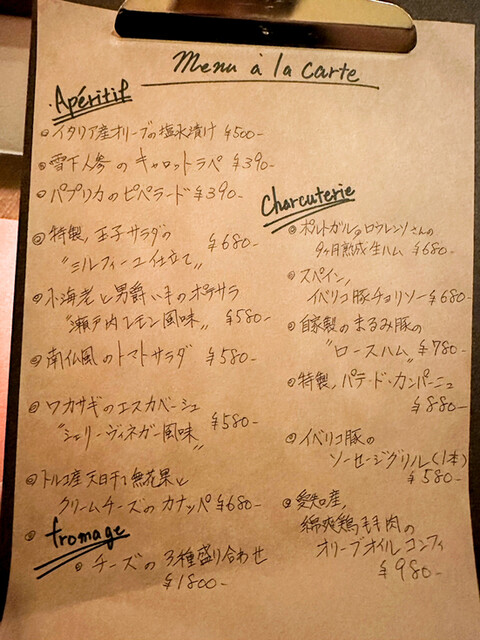 Menu à la carte
Apéritif
イタリア産オリーブの塩水漬け ¥500-
雪下人参のキャロットラペ ¥390-
パプリカのピペラード ¥390-
特製,玉子サラダの ¥680-
"ミルフィーユ仕立て"
小海老と男爵いものポテサラ
"瀬戸内レモン風味" ¥580-
南仏風のトマトサラダ ¥580-
ワカサギのエスカベーシュ
"シェリーヴィネガー風味" ¥580-
トルコ産天日干し無花果と
クリームチーズのカナッペ ¥680-
fromage
チーズの3種盛り合わせ
¥1800-
Charcuterie
ポルトガル,ロウレンソさんの
9ヶ月熟成生ハム ¥680-
スペイン,
イベリコ豚チョリソー ¥680-
自家製のまるみ豚の
"ロースハム" ¥780-
特製,パテ・ド・カンパーニュ
¥880-
イベリコ豚の
ソーセージグリル(1本)
¥580-
愛知産,
錦爽鶏モモ肉の
オリーブオイルコンフィ
¥980-